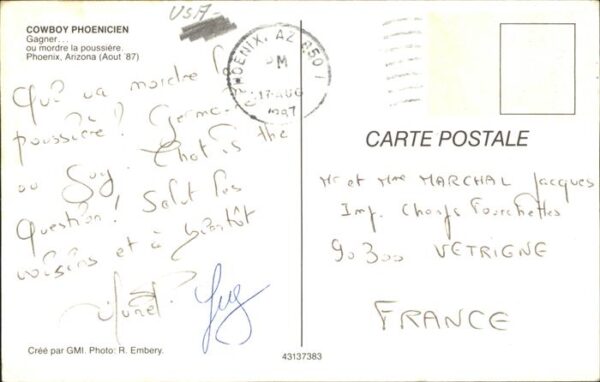 USA
COWBOY PHOENICIEN
Gagner...
ou mordre la poussière.
Phoenix, Arizona (Aout '87)
PHOENIX, AZ 850
PM
17 AUG
1987
Qui va mordre la
poussière? Germain
ou Guy. That is the
question! Salut les
voisins et à bientôt
Guy
Créé par GMI. Photo: R. Embery.
43137383
CARTE POSTALE
Mr et Mme MARCHAL Jacques
Imp. Champs Fourchettes
90300 VETRIGNE
FRANCE